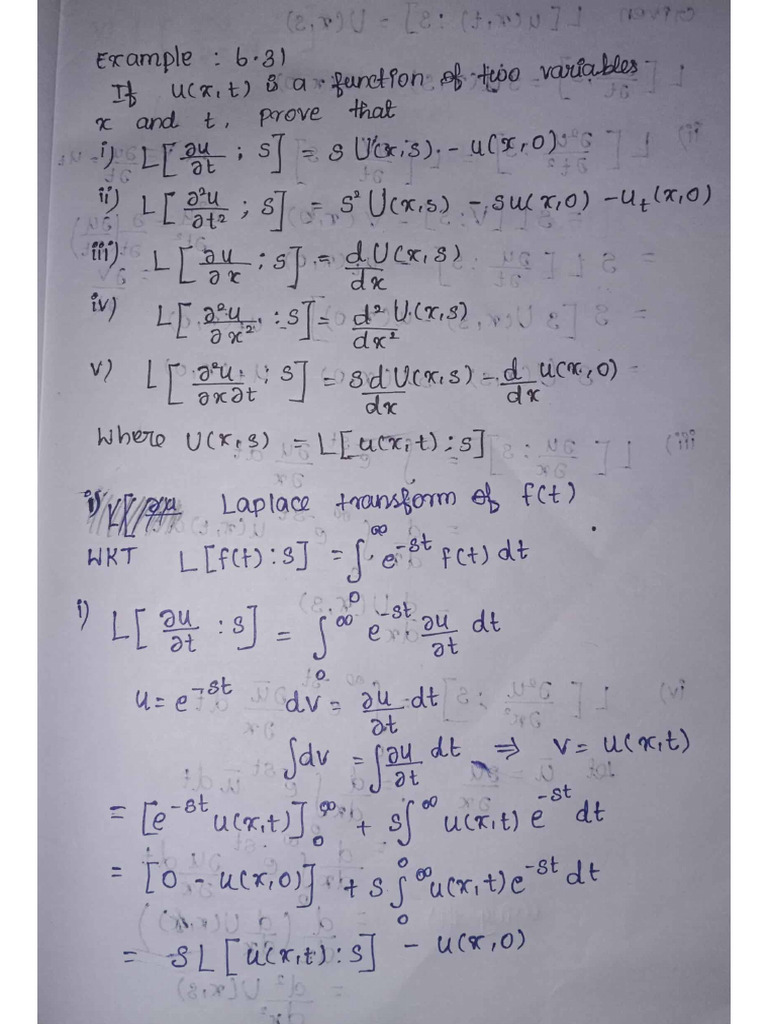 Example : 6.31
If u(x,t) is a function of two variables
x and t, prove that
i) L[∂u/∂t ; s] = s U(x,s) - u(x,0)
ii) L[∂²u/∂t² ; s] = s² U(x,s) - su(x,0) - u_t(x,0)
iii) L[∂u/∂x ; s] = d U(x,s)/dx
iv) L[∂²u/∂x² : s] = d² U(x,s)/dx²
v) L[∂²u/∂x∂t ; s] = s d/dx U(x,s) - d/dx u(x,0)
Where U(x,s) = L[u(x,t) : s]
Laplace transform of f(t)
WKT L[f(t) : s] = ∫₀^∞ e^-st f(t) dt
i) L[∂u/∂t : s] = ∫₀^∞ e^-st ∂u/∂t dt
u = e^-st dv = ∂u/∂t dt
∫dv = ∫∂u/∂t dt ⇒ v = u(x,t)
= [e^-st u(x,t)]₀^∞ + s∫₀^∞ u(x,t) e^-st dt
= [0 - u(x,0)] + s∫₀^∞ u(x,t) e^-st dt
= s L[u(x,t) : s] - u(x,0)